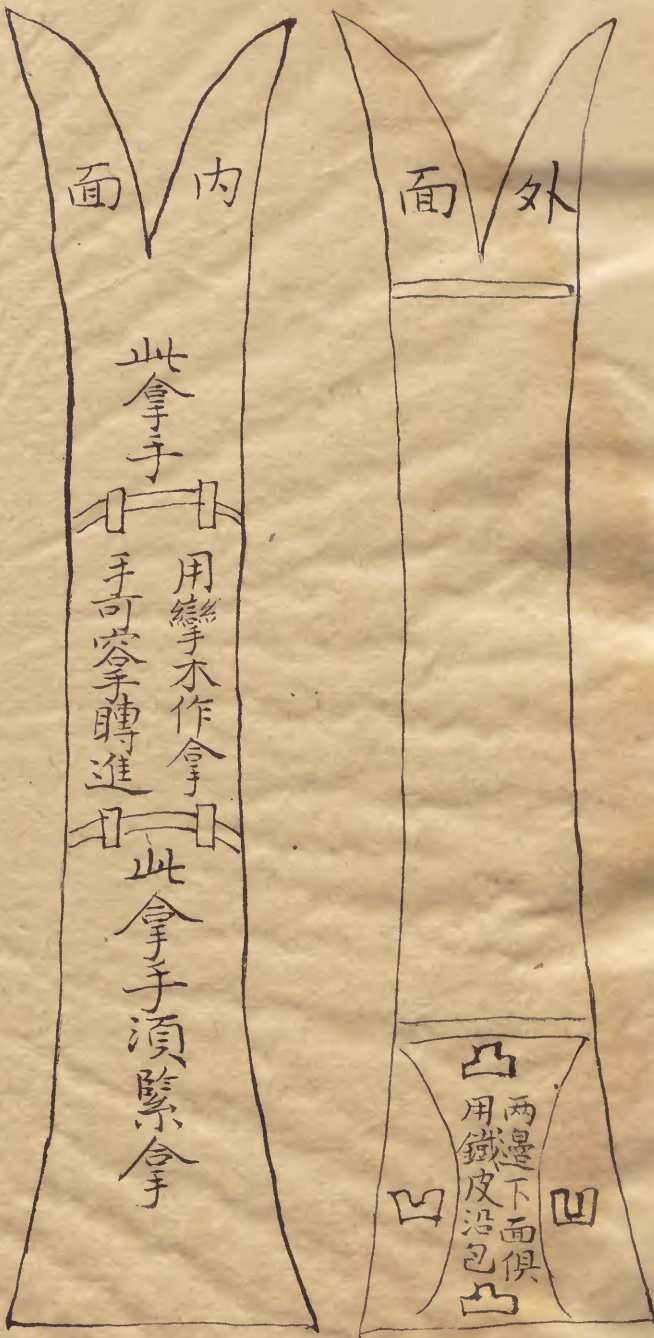 外面
凸
凹
两邊下面俱
用鐵皮沿包
凹
凸
内面
此拿手
用攣木作拿
手可容手轉進
此拿手湏緊拿